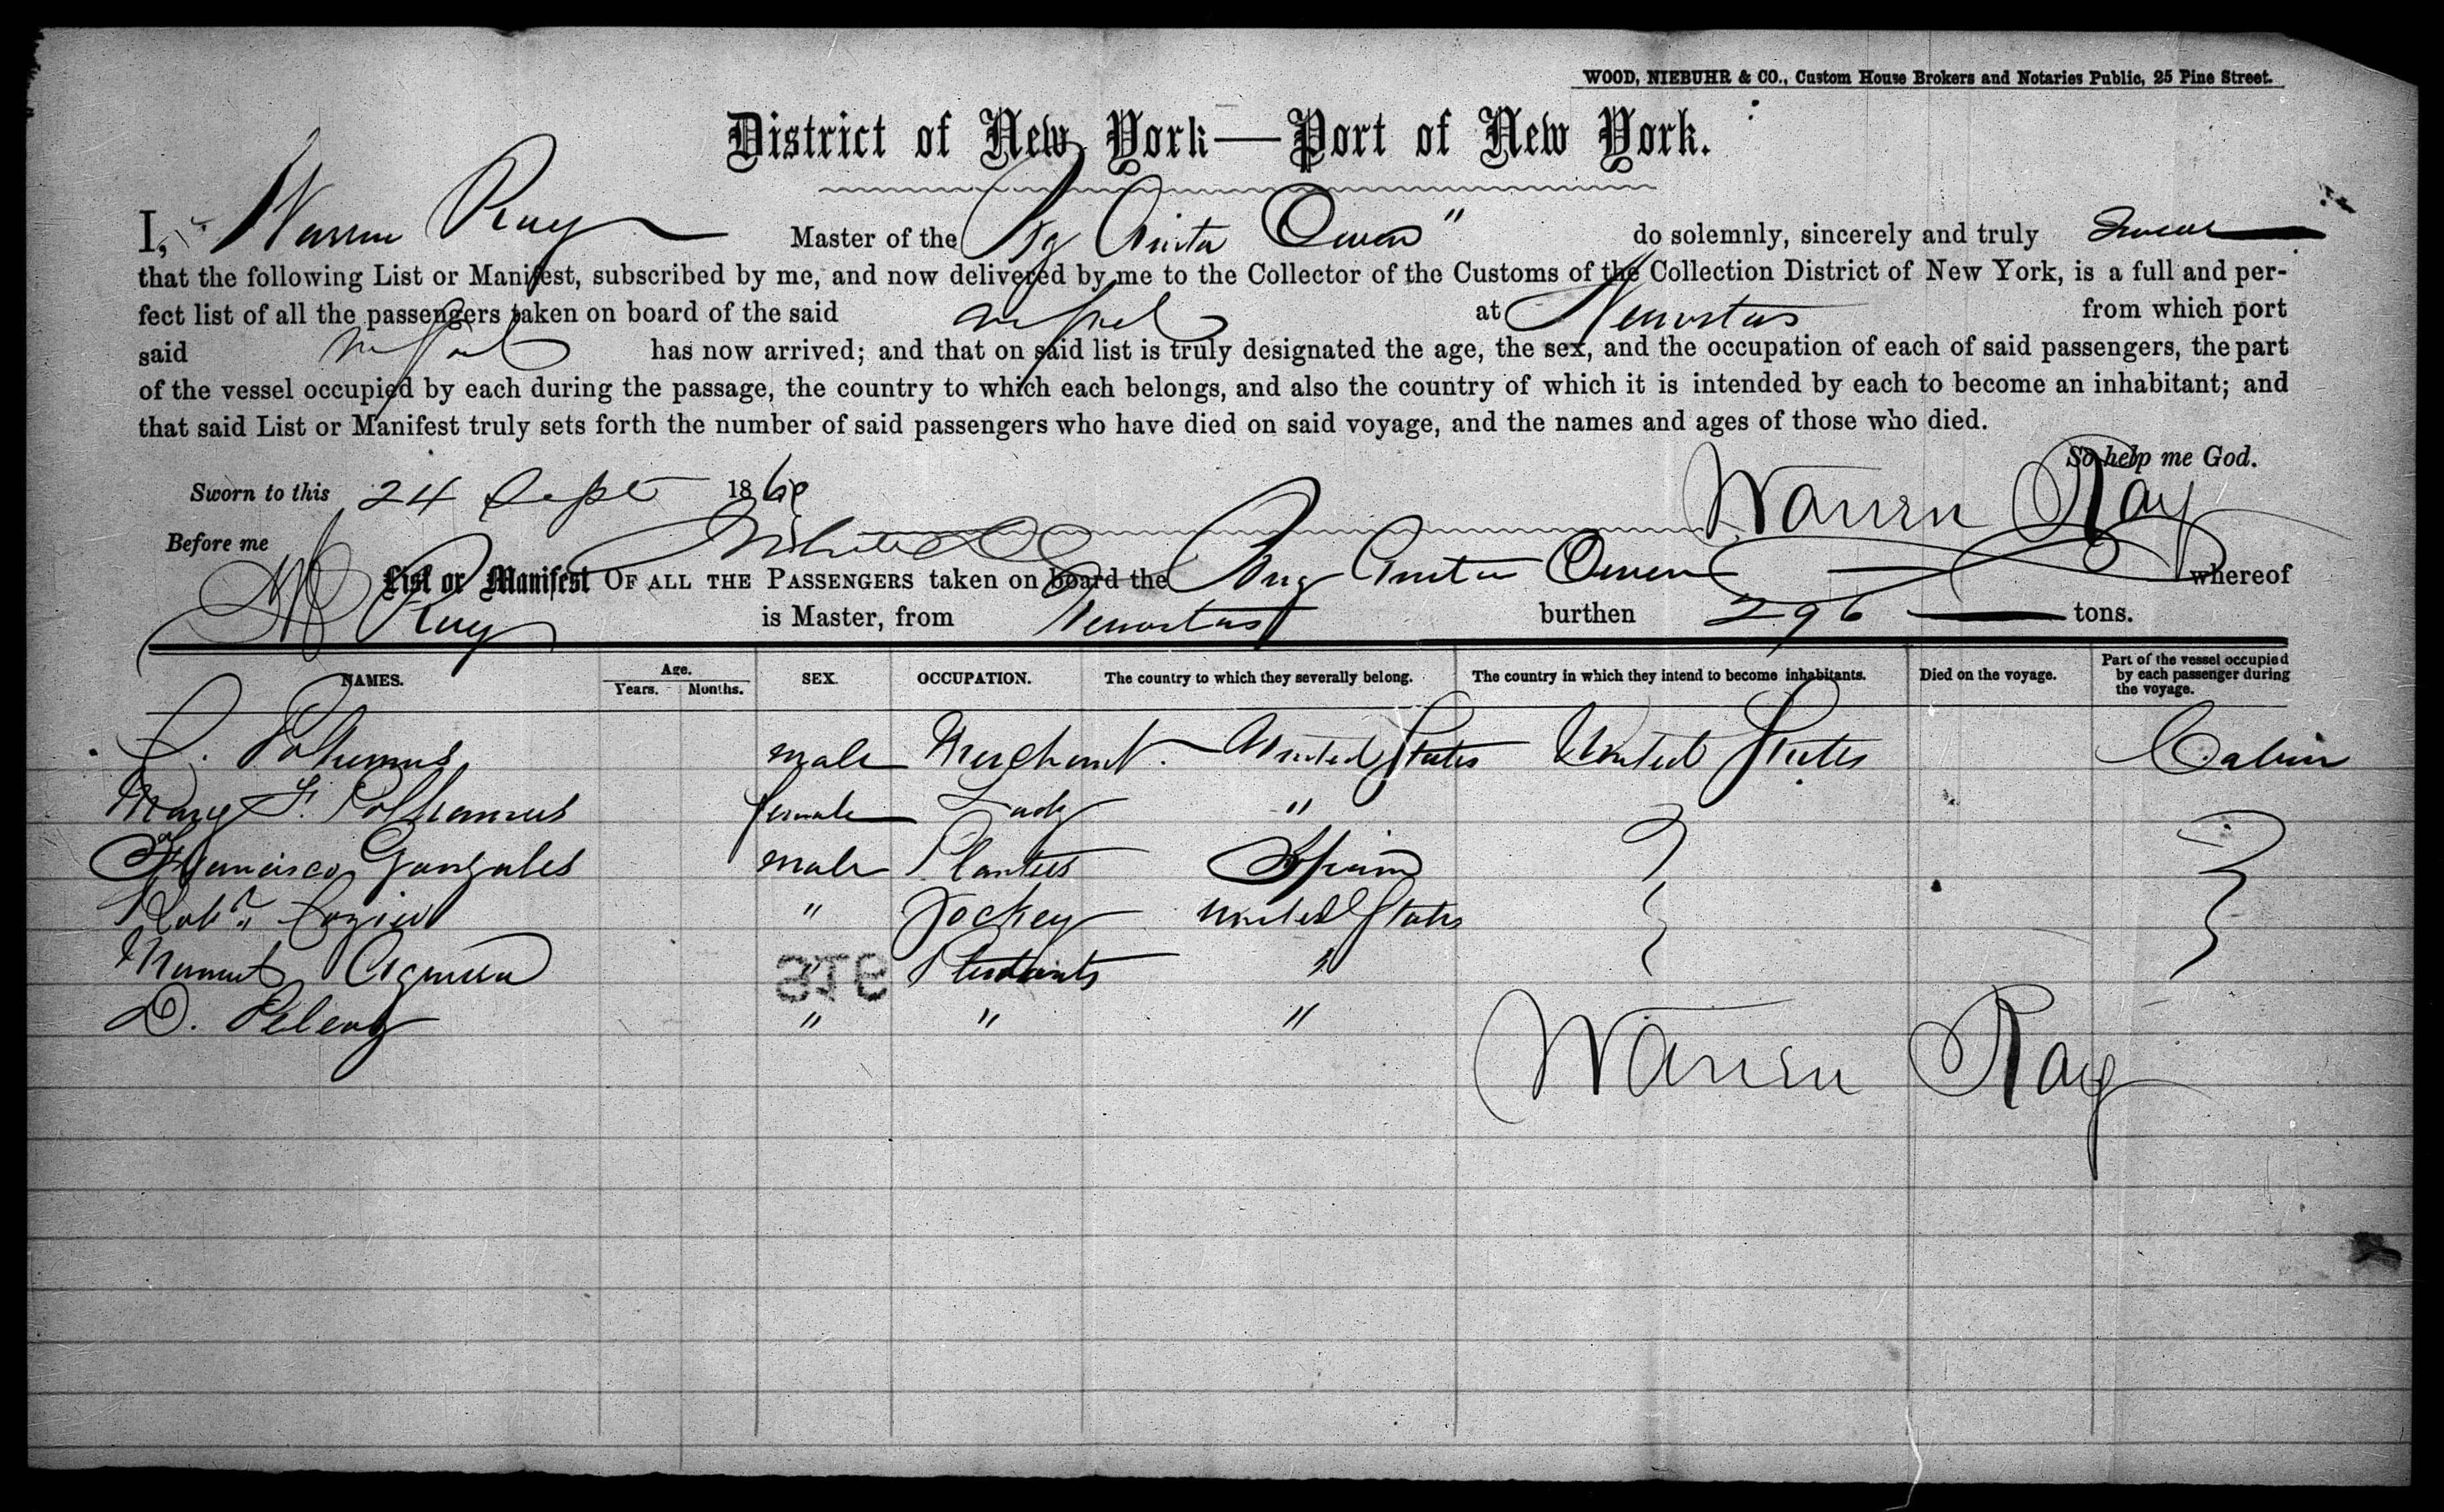 WOOD, NIEBUHR & CO., Custom House Brokers and Notaries Public, 25 Pine Street.
District of New York—Port of New York.
I, Warren Ray Master of the Bg Anita Owen" do solemnly, sincerely and truly swear
that the following List or Manifest, subscribed by me, and now delivered by me to the Collector of the Customs of the Collection District of New York, is a full and per-
fect list of all the passengers taken on board of the said vessel at Nuevitas from which port
said vessel has now arrived; and that on said list is truly designated the age, the sex, and the occupation of each of said passengers, the part
of the vessel occupied by each during the passage, the country to which each belongs, and also the country of which it is intended by each to become an inhabitant; and
that said List or Manifest truly sets forth the number of said passengers who have died on said voyage, and the names and ages of those who died.
So help me God.
Sworn to this 24 Sept 186 Warren Ray
Before me
List or Manifest OF ALL THE PASSENGERS taken on board the Brig Anita Owen whereof
W Ray is Master, from Nuevitas burthen 296 tons.
NAMES. Age. Years. Months. SEX. OCCUPATION. The country to which they severally belong. The country in which they intend to become inhabitants. Died on the voyage. Part of the vessel occupied by each passenger during the voyage.
Polhemus male Merchant. United States United States Cabin
Mary F. Polhamus female Lady "
Francisco Gonzales male Planter Spain
Robt. Cozier " Jockey United States
" Students "
D. " " "
Warren Ray